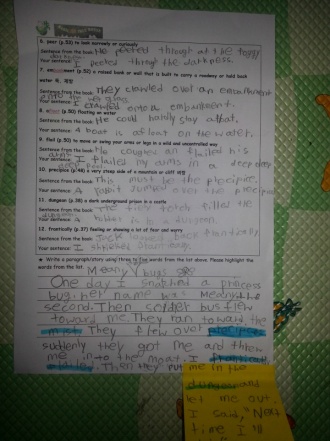 6. peer (p.52) to look narrowly or curiously
Sentence from the book: He peered through at the foggy
Your sentence: I peeter through the darkness.
7. embankment (p.32) a raised bank or wall that is built to carry a roadway or hold back
water
Sentence from the book: They clawled over an embankment
Your sentence: I crawled onto a embankment.
floating on water
Sentence from the book: He could hardly stay afloat.
Your sentence: A boat is afloat on the water.
9. flail (p.50) to move or swing your arms or legs in a wild and uncontrolled way
Sentence from the book: He coughed an flailed his
arms
Your sentence: I flailed my aims in a deep
10. precipice (p.48) a very steep side of a mountain or cliff
Sentence from the book: This must be the precipice.
Your sentence: A rabbit jumped over the precipice
11. dungeon (p.38) a dark underground prison in a castle
Sentence from the book: The fiery torch filled the
Your sentence: A robber is in a dungeon.
12. frantically (p.37) feeling or showing a lot of fear and worry
Sentence from the book: Jack looked back frantically.
Your sentence: I
Write a paragraph/story using three to five words from the list above. Please highlight the
words from the list.
Meany bugs
One day I snached a process
bug. her name was Meany the
second. Then soilder bugs flew
toward me. They ran toward the
moat. They flew over precipise
suddenly they got me and thrw
me into the moat. I frantically
Then they put me in the
dungeon and
let me out.
I said, "Next
time I'll